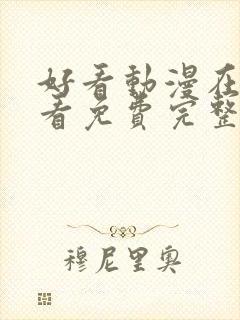 好看動漫在
看免費完整
穆尼里奥